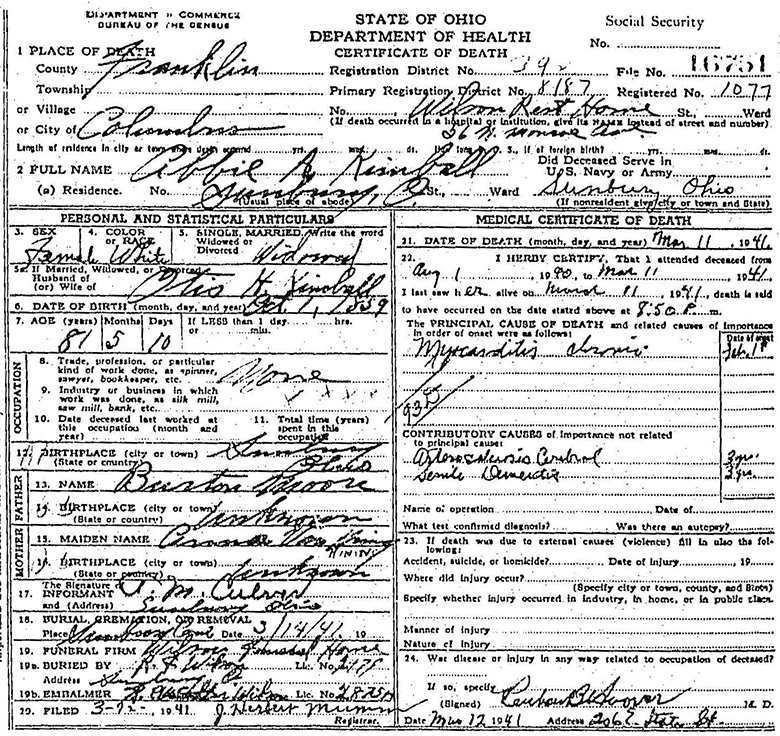 DEPARTMENT OF COMMERCE
BUREAU OF THE CENSUS
STATE OF OHIO
DEPARTMENT OF HEALTH
CERTIFICATE OF DEATH
Social Security
No.
1 PLACE OF DEATH
County Franklin
Registration District No. 392
File No. 16751
Township
Primary Registration District No. 8187
Registered No. 1077
or Village
No. Wilson Rest Home St., Ward
(If death occurred in a hospital or institution, give its NAME instead of street and number)
or City of Columbus
36 N. Monroe Ave
Length of residence in city or town where death occurred yrs. mos. ds. How long in U. S., if of foreign birth? yrs. mos. ds.
2 FULL NAME Abbie A Kimball
Did Deceased Serve in
U. S. Navy or Army
(a) Residence. No. Sunbury, O. St., Ward Sunbury Ohio
(Usual place of abode)
(If nonresident give city or town and State)
PERSONAL AND STATISTICAL PARTICULARS
3. SEX Female
4. COLOR or RACE White
5. SINGLE, MARRIED, Write the word
Widowed or
Divorced Widowed
5a. If Married, Widowed, or Divorced
Husband of
(or) Wife of Otis H. Kimball
6. DATE OF BIRTH (month, day, and year) Oct 1, 1859
7. AGE (years) Months Days If LESS than 1 day hrs.
81 5 10 or min.
OCCUPATION
8. Trade, profession, or particular
kind of work done, as spinner,
sawyer, bookkeeper, etc. None
9. Industry or business in which
work was done, as silk mill,
saw mill, bank, etc.
10. Date deceased last worked at
this occupation (month and
year)
11. Total time (years)
spent in this
occupation
12. BIRTHPLACE (city or town) Sunbury
(State or country) Ohio
FATHER
13. NAME Burton Moore
14. BIRTHPLACE (city or town)
(State or country) Unknown
MOTHER
15. MAIDEN NAME
16. BIRTHPLACE (city or town)
(State or country) Unknown
17. The Signature of
INFORMANT M. Culver
and (Address) Sunbury Ohio
18. BURIAL, CREMATION, OR REMOVAL
Place Date 3/14/41, 19
19. FUNERAL FIRM Wilson Funeral Home
19a. BURIED BY R F Wilson Lic. No.
Address Sunbury O
19b. EMBALMER Wilson Lic. No.
20. FILED 3-12-, 1941. J. Herbert Mumm
Registrar.
MEDICAL CERTIFICATE OF DEATH
21. DATE OF DEATH (month, day, and year) Mar 11, 1941.
22. I HEREBY CERTIFY, That I attended deceased from
Aug 1, 1940, to Mar 11, 1941.
I last saw her alive on March 11, 1941, death is said
to have occurred on the date stated above at 8:50 P. m.
The PRINCIPAL CAUSE OF DEATH and related causes of Importance
in order of onset were as follows:
Date of onset
Myocarditis chronic
93D
CONTRIBUTORY CAUSES of Importance not related
to principal cause:
Arterosclerosis Cerebral 3 yrs.
Senile Dementia 3 yrs.
Name of operation Date of
What test confirmed diagnosis? Was there an autopsy?
23. If death was due to external causes (violence) fill in also the fol-
lowing:
Accident, suicide, or homicide? Date of injury , 19
Where did injury occur?
(Specify city or town, county, and State)
Specify whether injury occurred in industry, in home, or in public place.
Manner of injury
Nature of injury
24. Was disease or injury in any way related to occupation of deceased?
If so, specify
(Signed) Hoover M. D.
Date Mar 12 1941 Address 206 E. State St.